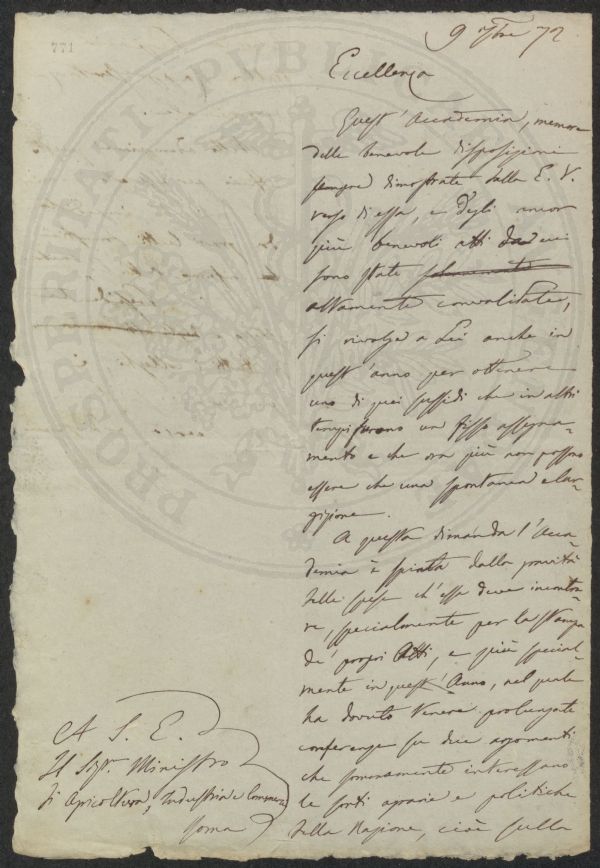 771
9 xbre 72
Eccellenza
Quest' Accademia, memore
delle benevole disposizioni
sempre dimostrate dalla E. V.
verso di essa, e degli ancor
più benevoli atti da cui
sono state
altamente convalidate,
si rivolge a Lei anche in
quest' anno per ottenere
uno di quei sussidi che in altri
tempi furono un fisso assegna-
mento e che ora più non possono
essere che una spontanea elar-
gizione.
A questa dimanda l'Acca-
demia è spinta dalla gravità
delle spese ch'essa deve incontra-
re, specialmente per la stampa
de' propri Atti, e più special-
mente in quest' Anno, nel quale
ha dovuto tenere prolungate
conferenze su due argomenti
che sommamente interessano
le sorti agrarie e politiche
della Nazione, cioè sulla
A S. E.
Il Sigr. Ministro
di Agricoltura, Industria e Commercio
Roma
PROSPERITATI PUBLICAE